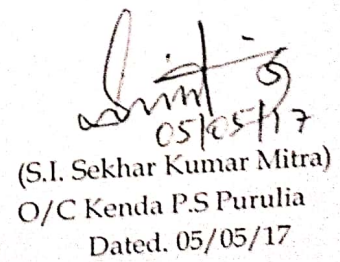 05/05/17
(S.I. Sekhar Kumar Mitra)
O/C Kenda P.S Purulia
Dated. 05/05/17